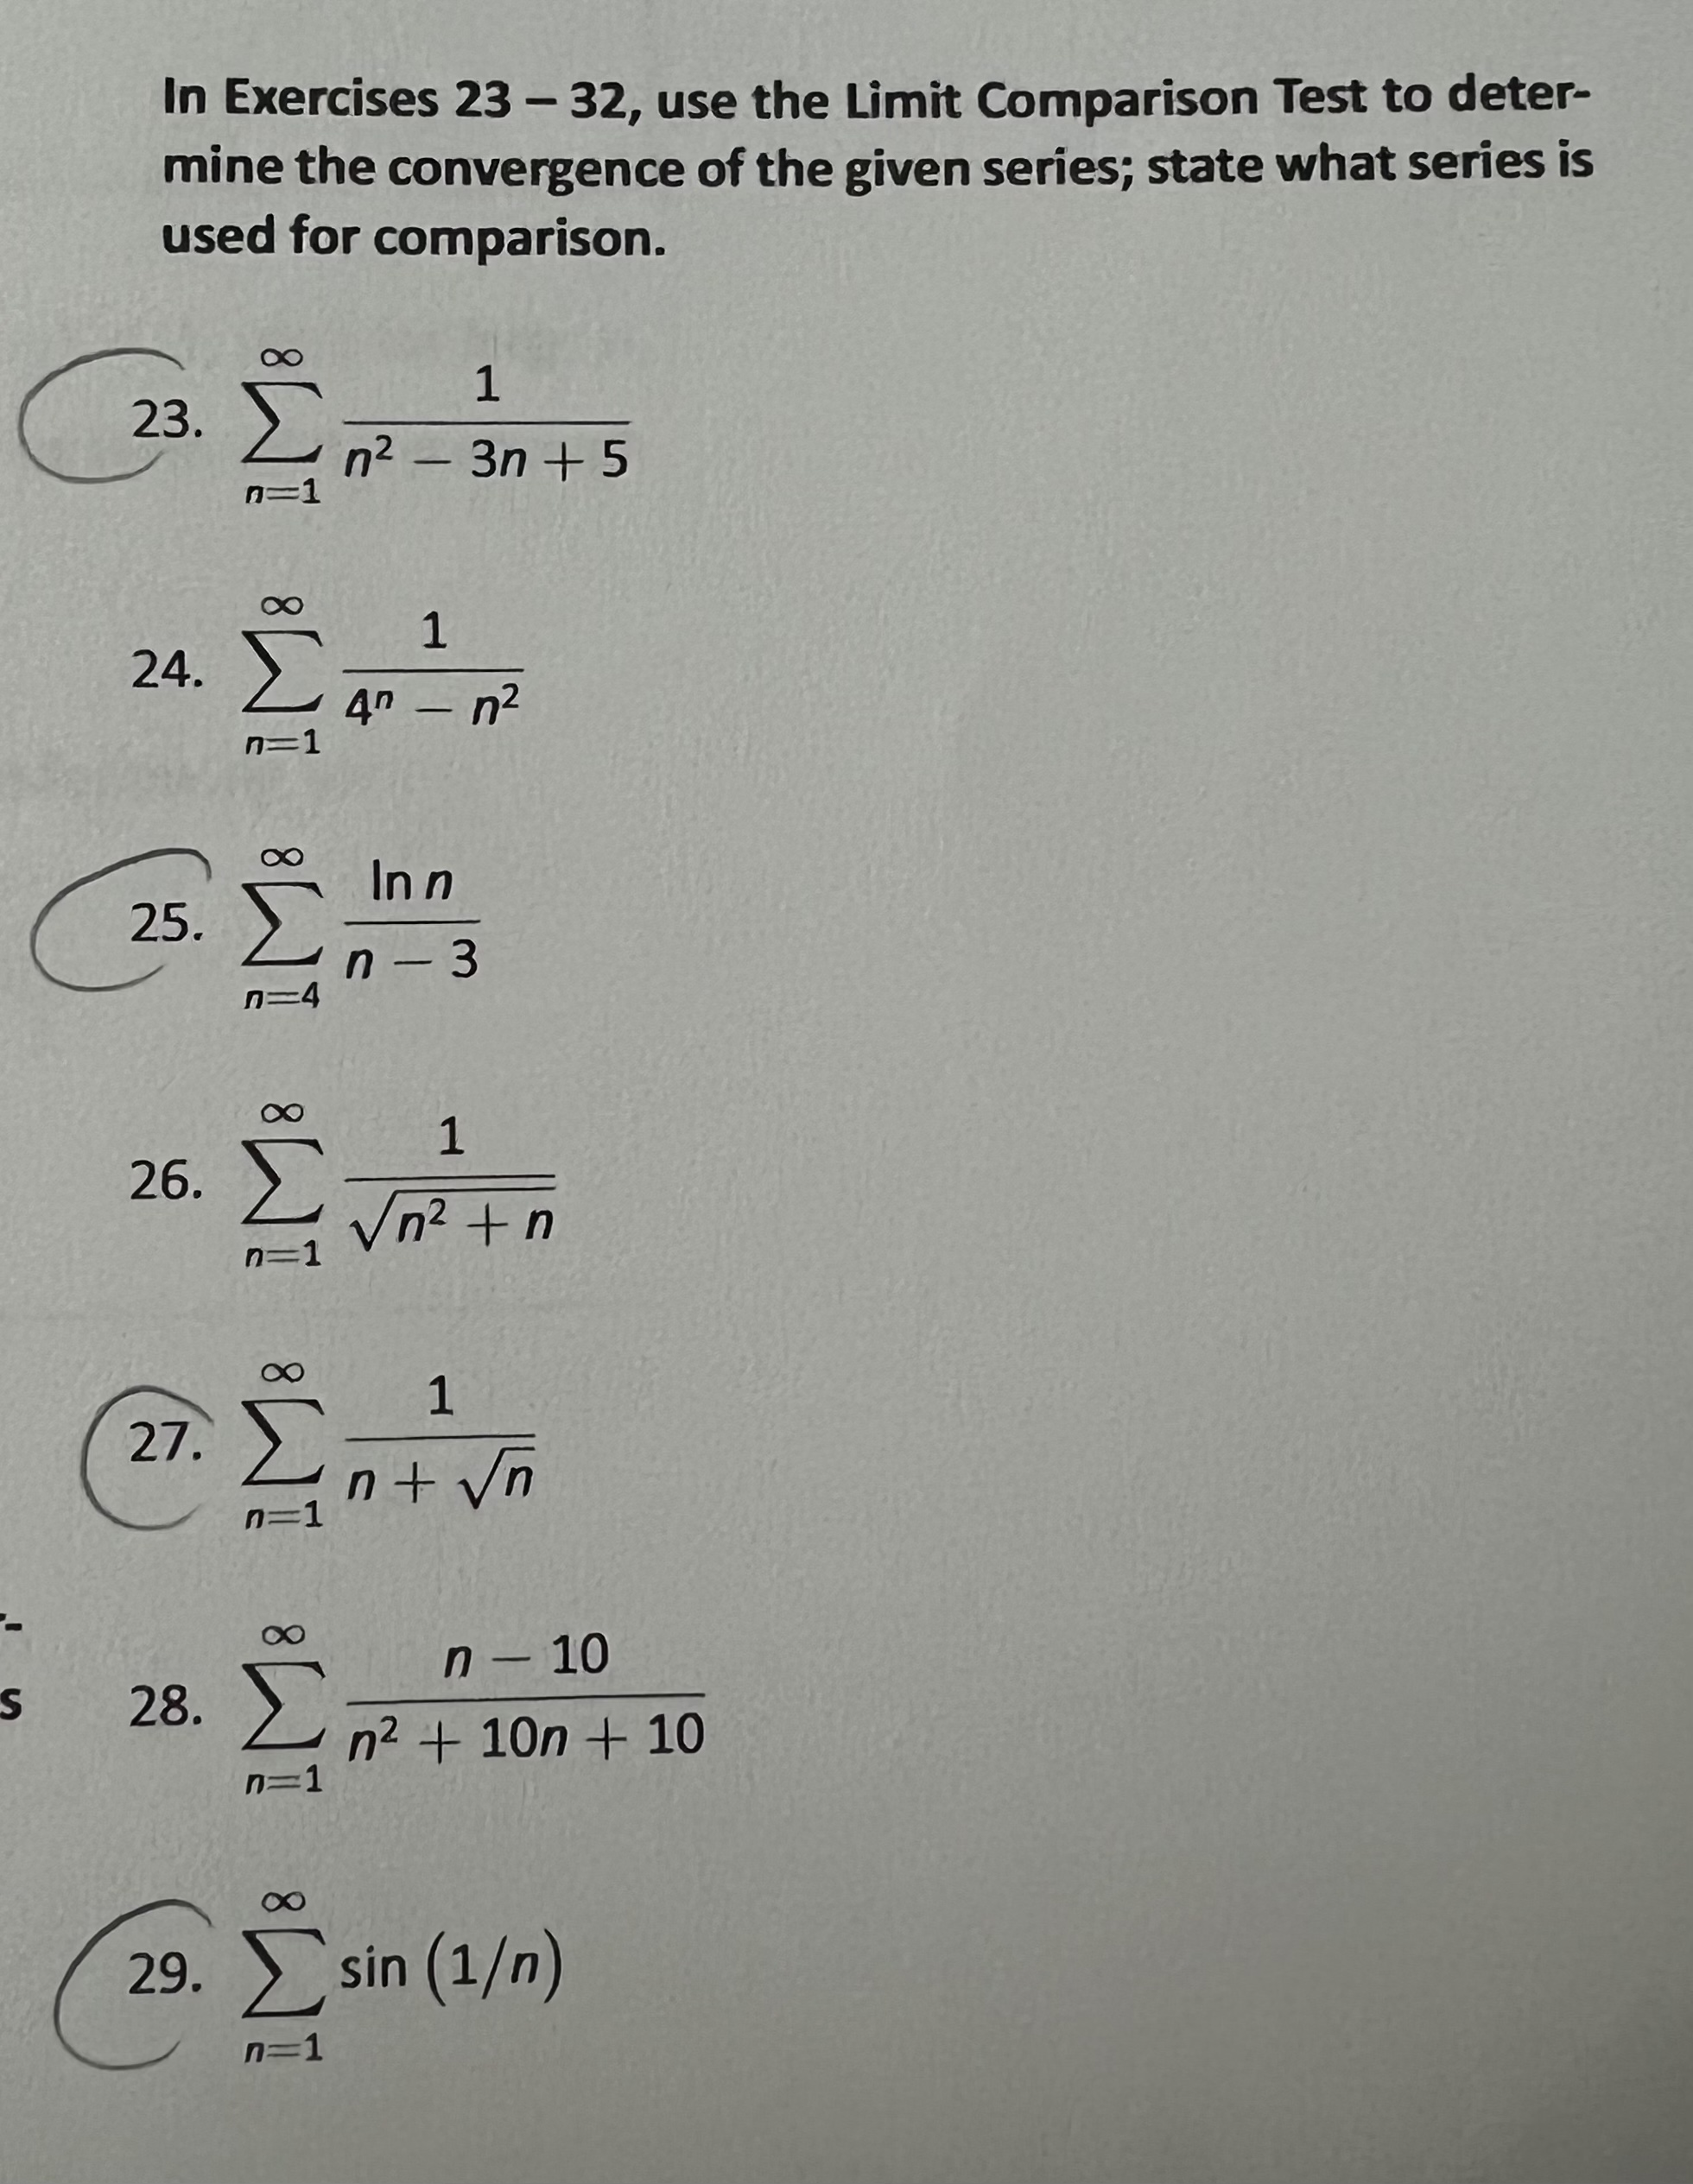 In Exercises 23 – 32, use the Limit Comparison Test to deter-
mine the convergence of the given series; state what series is
used for comparison.
23. ∑_{n=1}^{∞} 1/(n² − 3n + 5)
24. ∑_{n=1}^{∞} 1/(4ⁿ − n²)
25. ∑_{n=4}^{∞} ln n/(n − 3)
26. ∑_{n=1}^{∞} 1/√(n² + n)
27. ∑_{n=1}^{∞} 1/(n + √n)
r-
s
28. ∑_{n=1}^{∞} (n − 10)/(n² + 10n + 10)
29. ∑_{n=1}^{∞} sin (1/n)